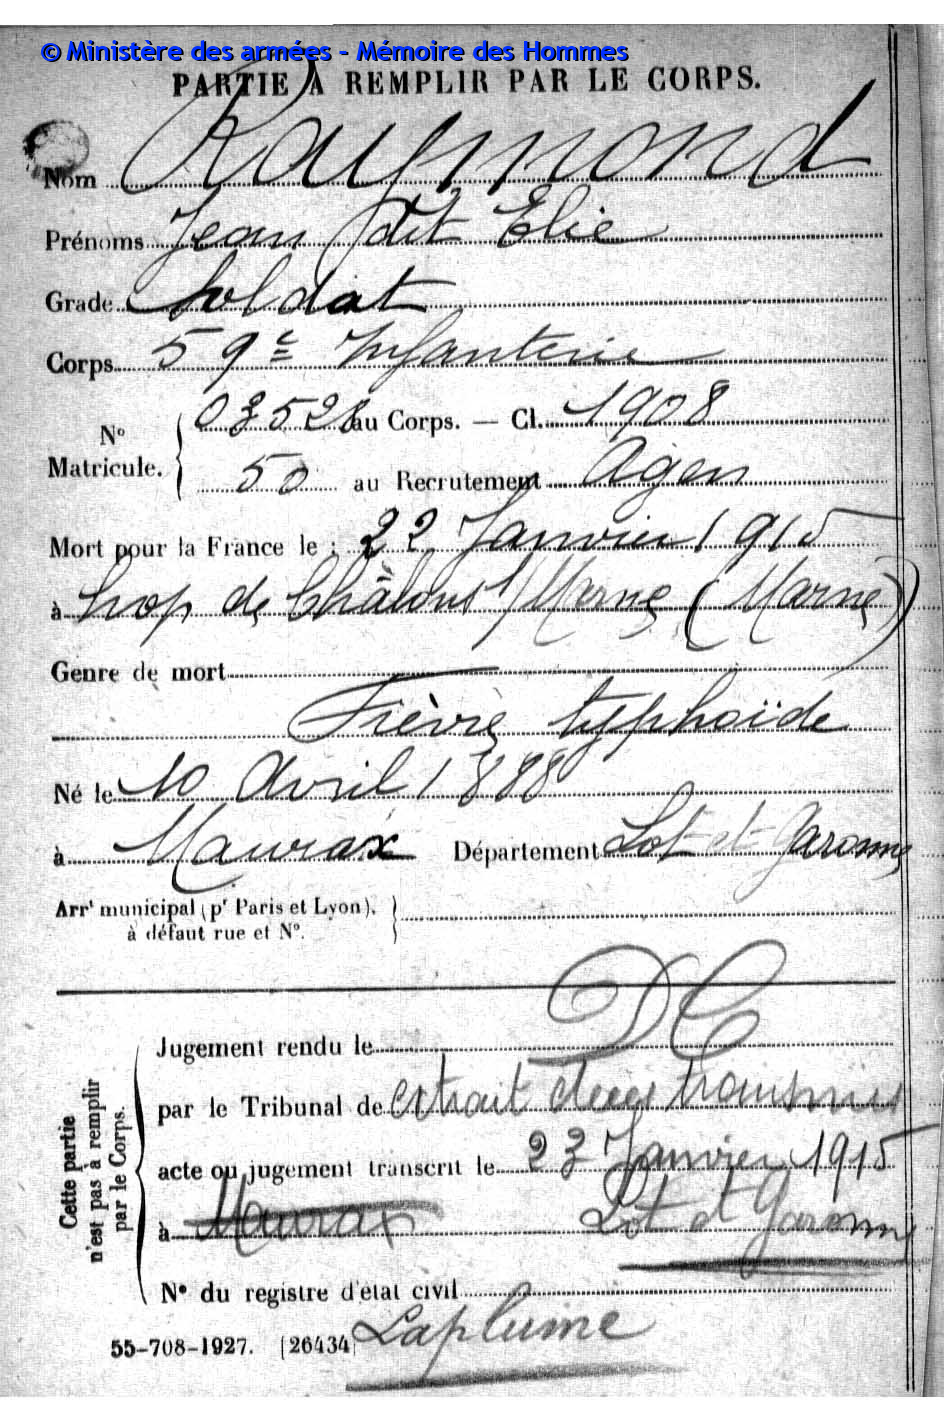 © Ministère des armées - Mémoire des Hommes
PARTIE À REMPLIR PAR LE CORPS.
Nom Raymond
Prénoms Jean dit Elie
Grade Soldat
Corps 59e Infanterie
No Matricule. 03528 au Corps. — Cl. 1908
50 au Recrutement Agen
Mort pour la France le : 22 Janvier 1915
à hop de Châlons s/Marne (Marne)
Genre de mort
Fièvre typhoïde
Né le 10 Avril 1888
à Maurax Département Lot-et-Garonne
Arrt municipal (pr Paris et Lyon),
à défaut rue et No.
DC
Jugement rendu le
par le Tribunal de extrait décès transmis
acte ou jugement transcrit le 23 Janvier 1915
à Maurax Lot et Garonne
No du registre d'état civil
Laplume
Cette partie
n'est pas à remplir
par le Corps.
55-708-1927. [26434]